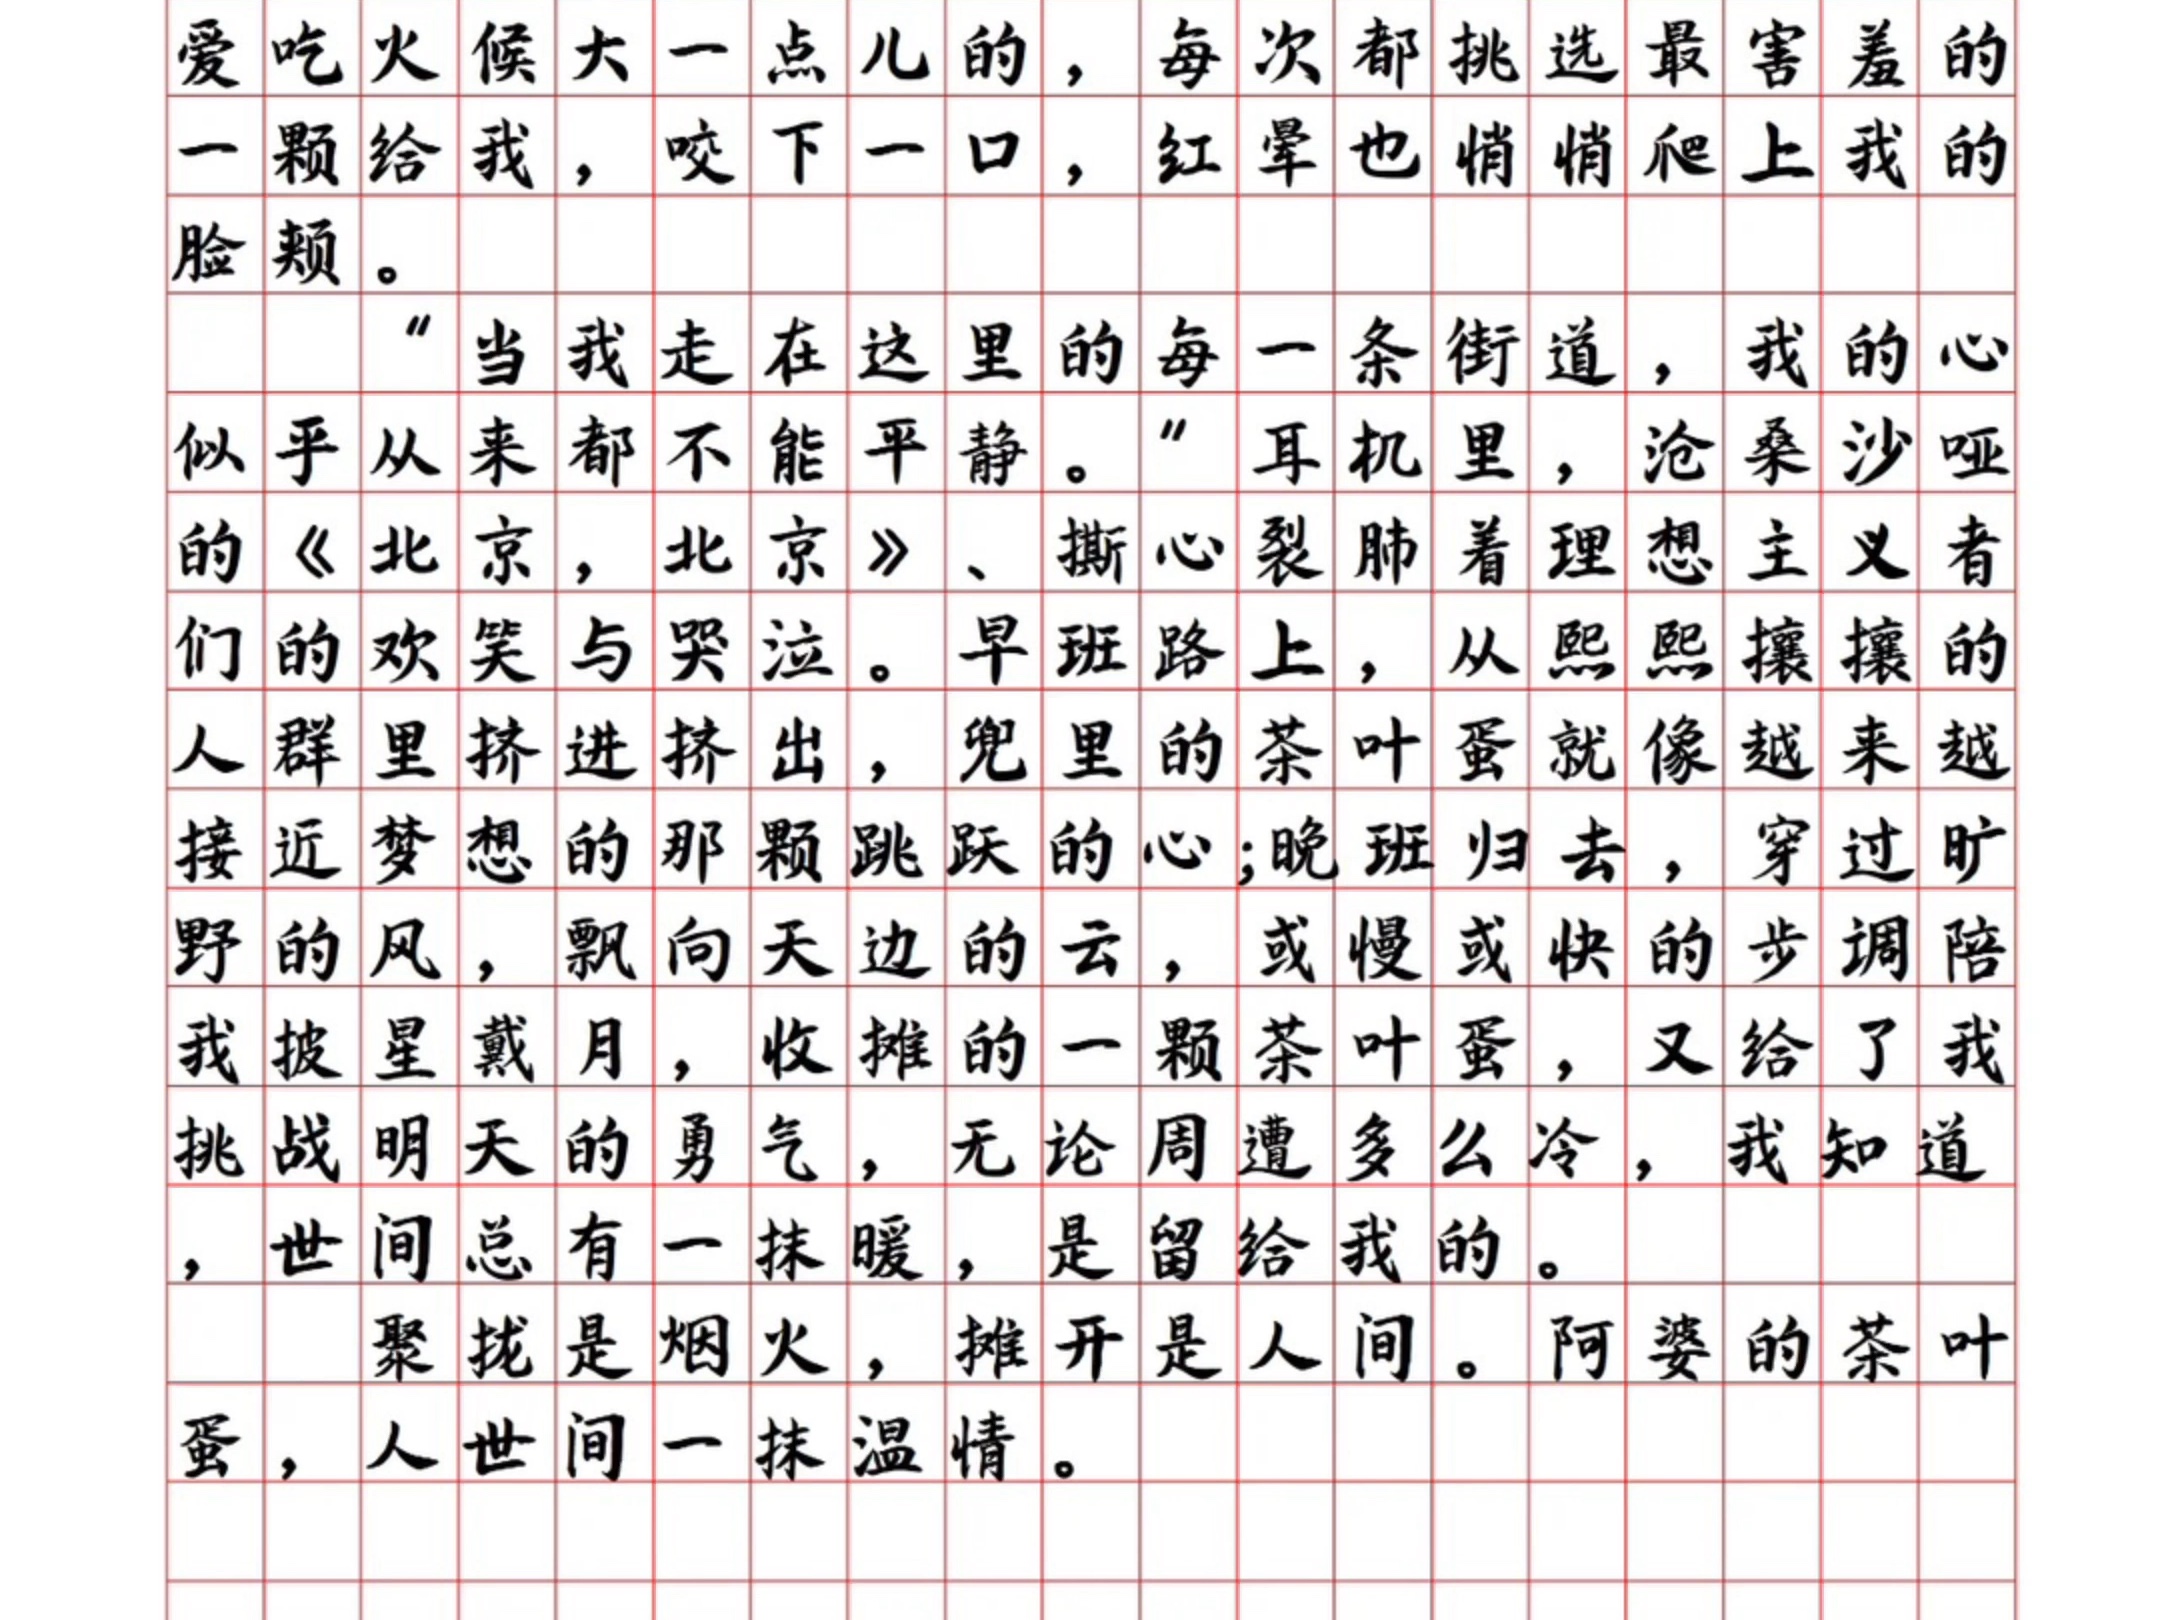 爱吃火候大一点儿的，每次都挑选最害羞的
一颗给我，咬下一口，红晕也悄悄爬上我的
脸颊。
“当我走在这里的每一条街道，我的心
似乎从来都不能平静。”耳机里，沧桑沙哑
的《北京，北京》、撕心裂肺着理想主义者
们的欢笑与哭泣。早班路上，从熙熙攘攘的
人群里挤进挤出，兜里的茶叶蛋就像越来越
接近梦想的那颗跳跃的心;晚班归去，穿过旷
野的风，飘向天边的云，或慢或快的步调陪
我披星戴月，收摊的一颗茶叶蛋，又给了我
挑战明天的勇气，无论周遭多么冷，我知道
，世间总有一抹暖，是留给我的。
聚拢是烟火，摊开是人间。阿婆的茶叶
蛋，人世间一抹温情。